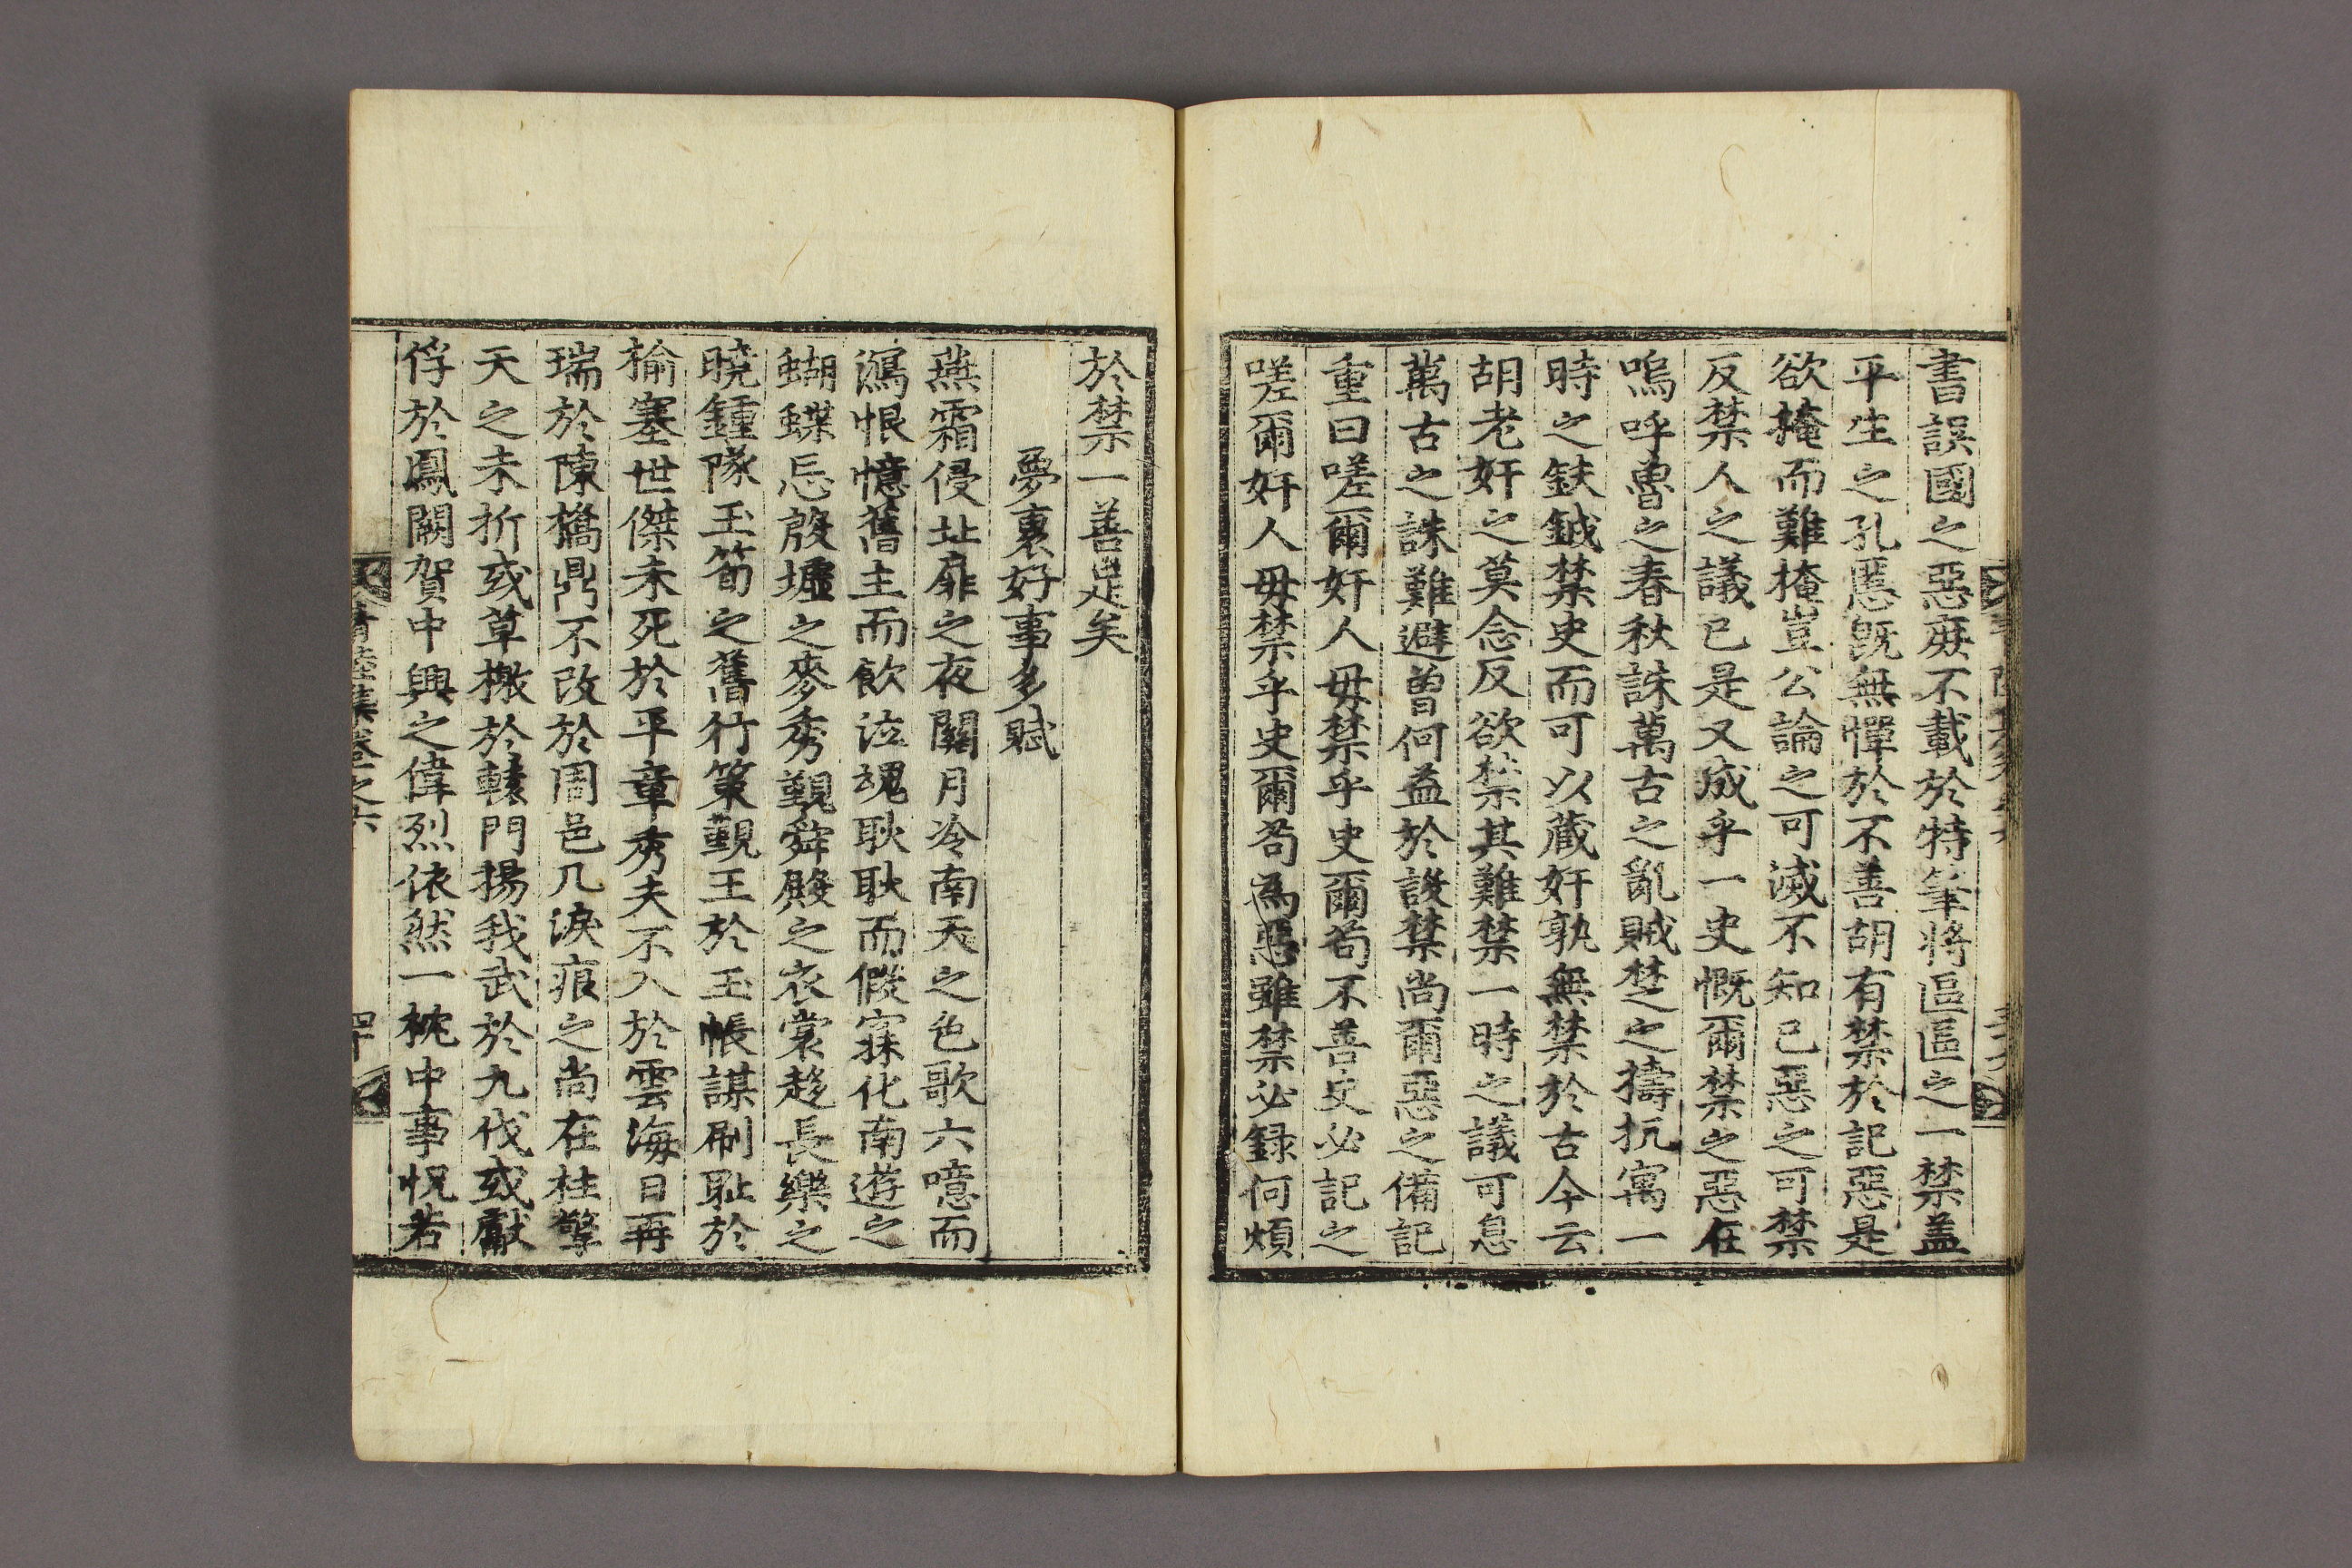 書誤國之惡庭不載於特筆將區區之一禁盖
平生之孔慝旣無憚於不善胡有禁於記惡是
欲掩而難掩豈公論之可滅不知己惡之可禁
反禁人之議已是又成乎一史慨爾禁之惡在
嗚呼魯之春秋誅萬古之亂賊楚之擣杌寓一
時之鈇鉞禁史而可以藏奸孰無禁於古今云
胡老奸之莫念反欲禁其難禁一時之議可息
萬古之誅難避曾何益於設禁尚爾惡之備記
重曰嗟爾奸人毋禁乎史爾苟不善史必記之
嗟爾奸人毋禁乎史爾苟為惡雖禁必錄何煩
於禁一善足矣
夢裏好事多賦
燕霜侵北扉之夜闕月冷南天之色歌六噫而
瀉恨憶舊主而飲泣魂耿耿而假寐化南遊之
蝴蝶忘殷墟之麥秀覲舜殿之衣裳趍長樂之
曉鍾隊玉筍之舊行策覲王於玉帳謀刷耻於
楡塞世傑未死於平章秀夫不入於雲海日再
瑞於陳橋鼎不改於周邑几淚痕之尚在柱擎
天之未折或草檄於轅門揚我武於九伐或獻
俘於鳳闕賀中興之偉烈依然一枕中事怳若
集卷之六